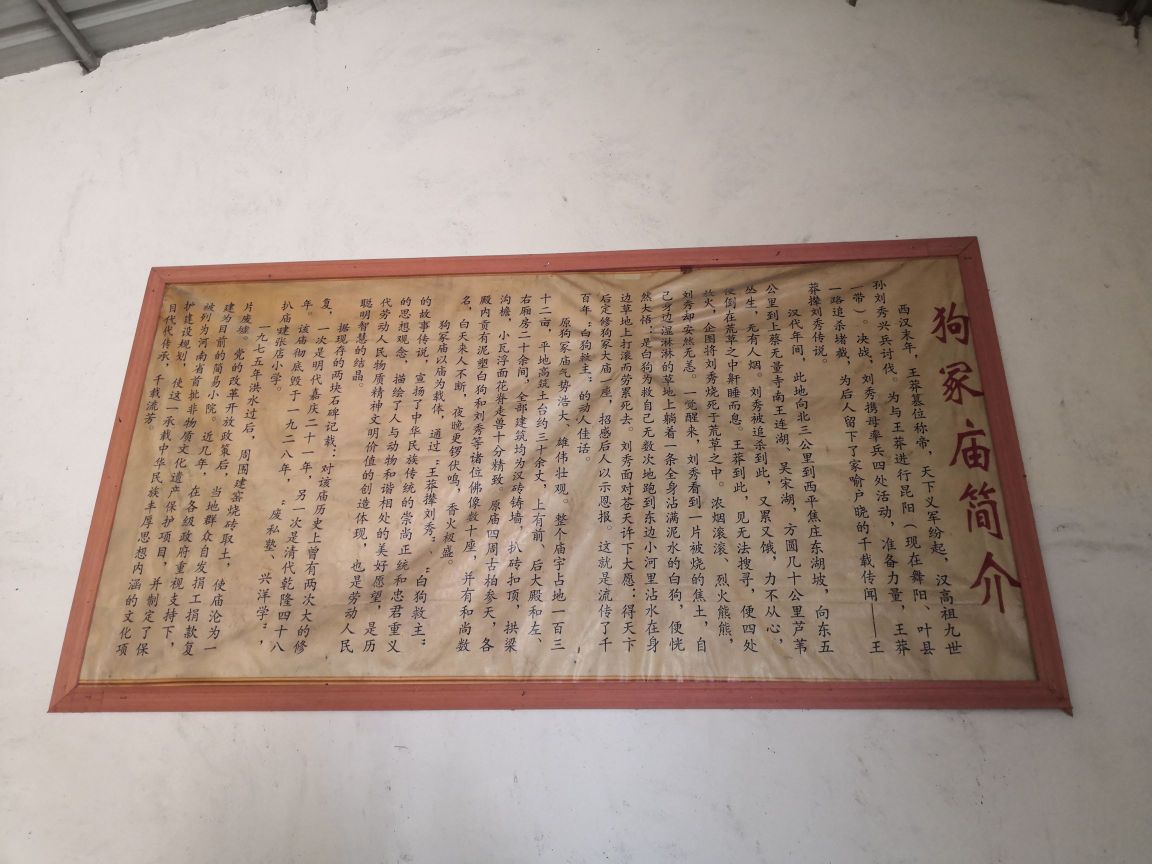 狗冢庙简介
西汉末年，王莽篡位称帝，天下义军纷起，汉高祖九世
孙刘秀兴兵讨伐。为与王莽进行昆阳（现在舞阳、叶县
一带）。决战，刘秀携母率兵四处活动，准备力量，王莽
一路追杀堵截，为后人留下了家喻户晓的千载传闻——王
莽撵刘秀传说。
汉代年间，此地向北三公里到西平焦庄东湖坡，向东五
公里到上蔡无量寺南王连湖、吴宋湖，方圆几十公里芦苇
丛生，无有人烟。刘秀被追杀到此，又累又饿，力不从心，
便倒在荒草之中鼾睡而息。王莽到此，见无法搜寻，便四处
放火，企图将刘秀烧死于荒草之中。浓烟滚滚、烈火熊熊，
刘秀却安然无恙。一觉醒来，刘秀看到一片被烧的焦土，自
己身边湿淋淋的草地上躺着一条全身沾满泥水的白狗，便恍
然大悟：是白狗为救自己无数次地跑到东边小河里沾水在身
边草地上打滚而劳累死去。刘秀面对苍天许下大愿：得天下
后定修狗冢大庙一座，招感后人以示恩报。这就是流传了千
百年：白狗救主：的动人佳话。
原狗冢庙气势浩大、雄伟壮观。整个庙宇占地一百三
十二亩，平地高筑土台约三十余丈，上有前、后大殿和左、
右厢房二十余间，全部建筑均为汉砖铸墙，扒砖扣顶，拱梁
沟檐，小瓦浮面花脊走兽十分精致。原庙四周古柏参天，各
殿内贡有泥塑白狗和刘秀等诸位佛像数十座，并有和尚数
名，白天来人不断，夜晚更锣伏鸣，香火极盛。
狗冢庙以庙为载体，通过：王莽撵刘秀、：白狗救主：
的故事传说，宣扬了中华民族传统的崇尚正统和忠君重义
的思想观念，描绘了人与动物和谐相处的美好愿望，是历
代劳动人民物质精神文明价值的创造体现，也是劳动人民
聪明智慧的结晶。
据现存的两块石碑记载：对该庙历史上曾有两次大的修
复，一次是明代嘉庆二十一年，另一次是清代乾隆四十八
年。该庙彻底毁于一九二八年，：废私塾、兴洋学：，
扒庙建张店小学。
一九七五年洪水过后，周围建窑烧砖取土，使庙沦为一
片废墟。党的改革开放政策后，当地群众自发捐工捐款复
建为目前的简易小院。近九年，在各级政府重视支持下，
被列为河南省首批非物质文化遗产保护项目，并制定了保
护建设规划，使这一承载中华民族丰厚思想内涵的文化项
目代代传承，千载流芳。